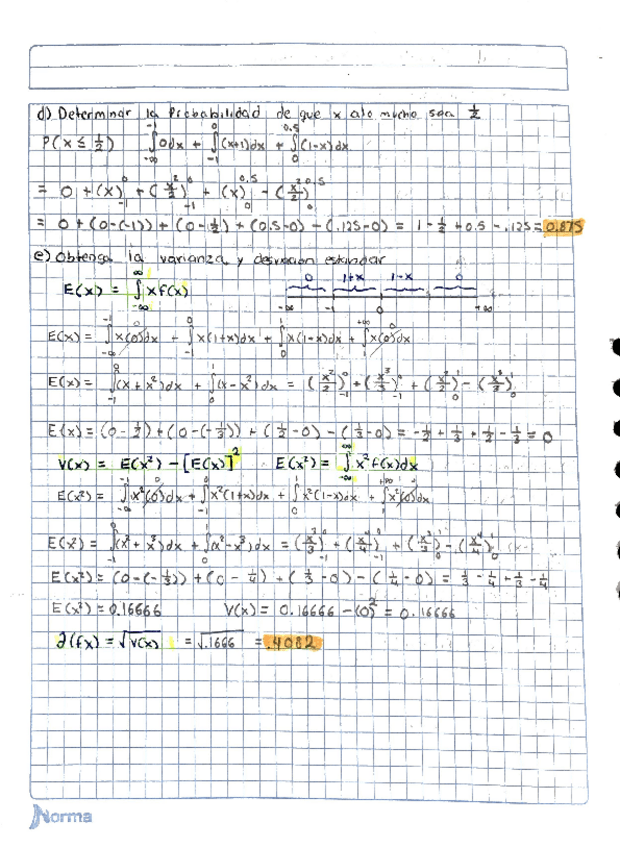 d) Determinar la Probabilidad de que x a lo mucho sea 1/2
P(x ≤ 1/2) ∫_{-∞}^{-1} 0dx + ∫_{-1}^{0} (x+1)dx + ∫_{0}^{0.5} (1-x)dx
= 0 + (x)_{-1}^{0} + (x²/2)_{-1}^{0} + (x)_{0}^{0.5} - (x²/2)_{0}^{0.5}
= 0 + (0-(-1)) + (0-1/2) + (0.5-0) - (.125-0) = 1 - 1/2 + 0.5 - .125 = 0.875
e) Obtenga la varianza y desviacion estandar
0 1+x 1-x 0
E(x) = ∫_{-∞}^{∞} x f(x)
-∞ -1 0 +∞
E(x) = ∫_{-∞}^{-1} x(0)dx + ∫_{-1}^{0} x(1+x)dx + ∫_{0}^{1} x(1-x)dx + ∫_{1}^{+∞} x(0)dx
E(x) = ∫_{-1}^{0} (x + x²)dx + ∫_{0}^{1} (x - x²)dx = (x²/2)_{-1}^{0} + (x³/3)_{-1}^{0} + (x²/2)_{0}^{1} - (x³/3)_{0}^{1}
E(x) = (0 - 1/2) + (0 - (-1/3)) + (1/2 - 0) - (1/3 - 0) = -1/2 + 1/3 + 1/2 - 1/3 = 0
V(x) = E(x²) - [E(x)]² E(x²) = ∫_{-∞}^{∞} x² f(x)dx
E(x²) = ∫_{-∞}^{-1} x²(0)dx + ∫_{-1}^{0} x²(1+x)dx + ∫_{0}^{1} x²(1-x)dx + ∫_{1}^{+∞} x²(0)dx
E(x²) = ∫_{-1}^{0} (x² + x³)dx + ∫_{0}^{1} (x² - x³)dx = (x³/3)_{-1}^{0} + (x⁴/4)_{-1}^{0} + (x³/3)_{0}^{1} - (x⁴/4)_{0}^{1}
E(x²) = (0 - (-1/3)) + (0 - 1/4) + (1/3 - 0) - (1/4 - 0) = 1/3 - 1/4 + 1/3 - 1/4
E(x²) = 0.16666 V(x) = 0.16666 - (0)² = 0.16666
∂(fx) = √V(x) = √.1666 = .4082
Norma